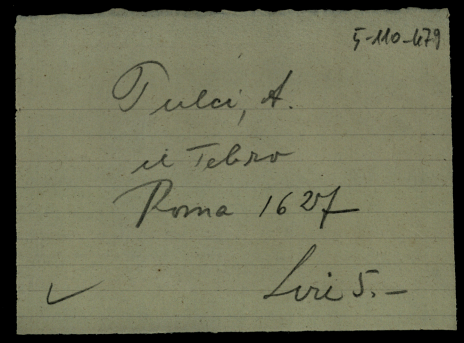 5-110-479
Tulci, A.
il Tebro
Roma 1627
Lire 5.-